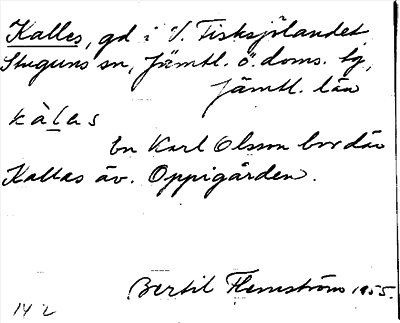 Kalles, gd i V. Fisksjölandet,
Stuguns sn, Jämtl. ö. doms. tg,
Jämtl. län
kàlas
En Karl Olsson bor där
Kallas äv. Oppigården.
Bertil Flemström 1955.
14 2